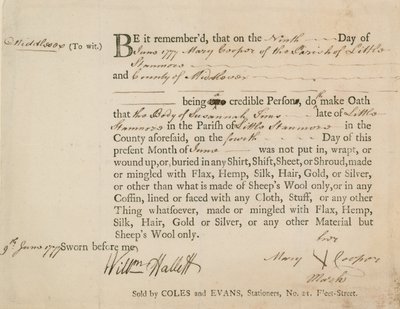 Middlesex (To wit.)
BE it remember'd, that on the Ninth Day of
June 1777 Mary Cooper of the Parish of Little
Stanmore
and County of Middlesex
being credible Person, doth make Oath
that the Body of Susannah Sims late of Little
Stanmore in the Parish of Little Stanmore in the
County aforesaid, on the fourth Day of this
present Month of June was not put in, wrapt, or
wound up, or buried in any Shirt, Shift, Sheet, or Shroud, made
or mingled with Flax, Hemp, Silk, Hair, Gold, or Silver,
or other than what is made of Sheep's Wool only, or in any
Coffin, lined or faced with any Cloth, Stuff, or any other
Thing whatsoever, made or mingled with Flax, Hemp,
Silk, Hair, Gold or Silver, or any other Material but
Sheep's Wool only.
9th June 1777 Sworn before me
her
Willm Hallett Mary X Cooper
Mark
Sold by COLES and EVANS, Stationers, No. 21. Fleet-Street.